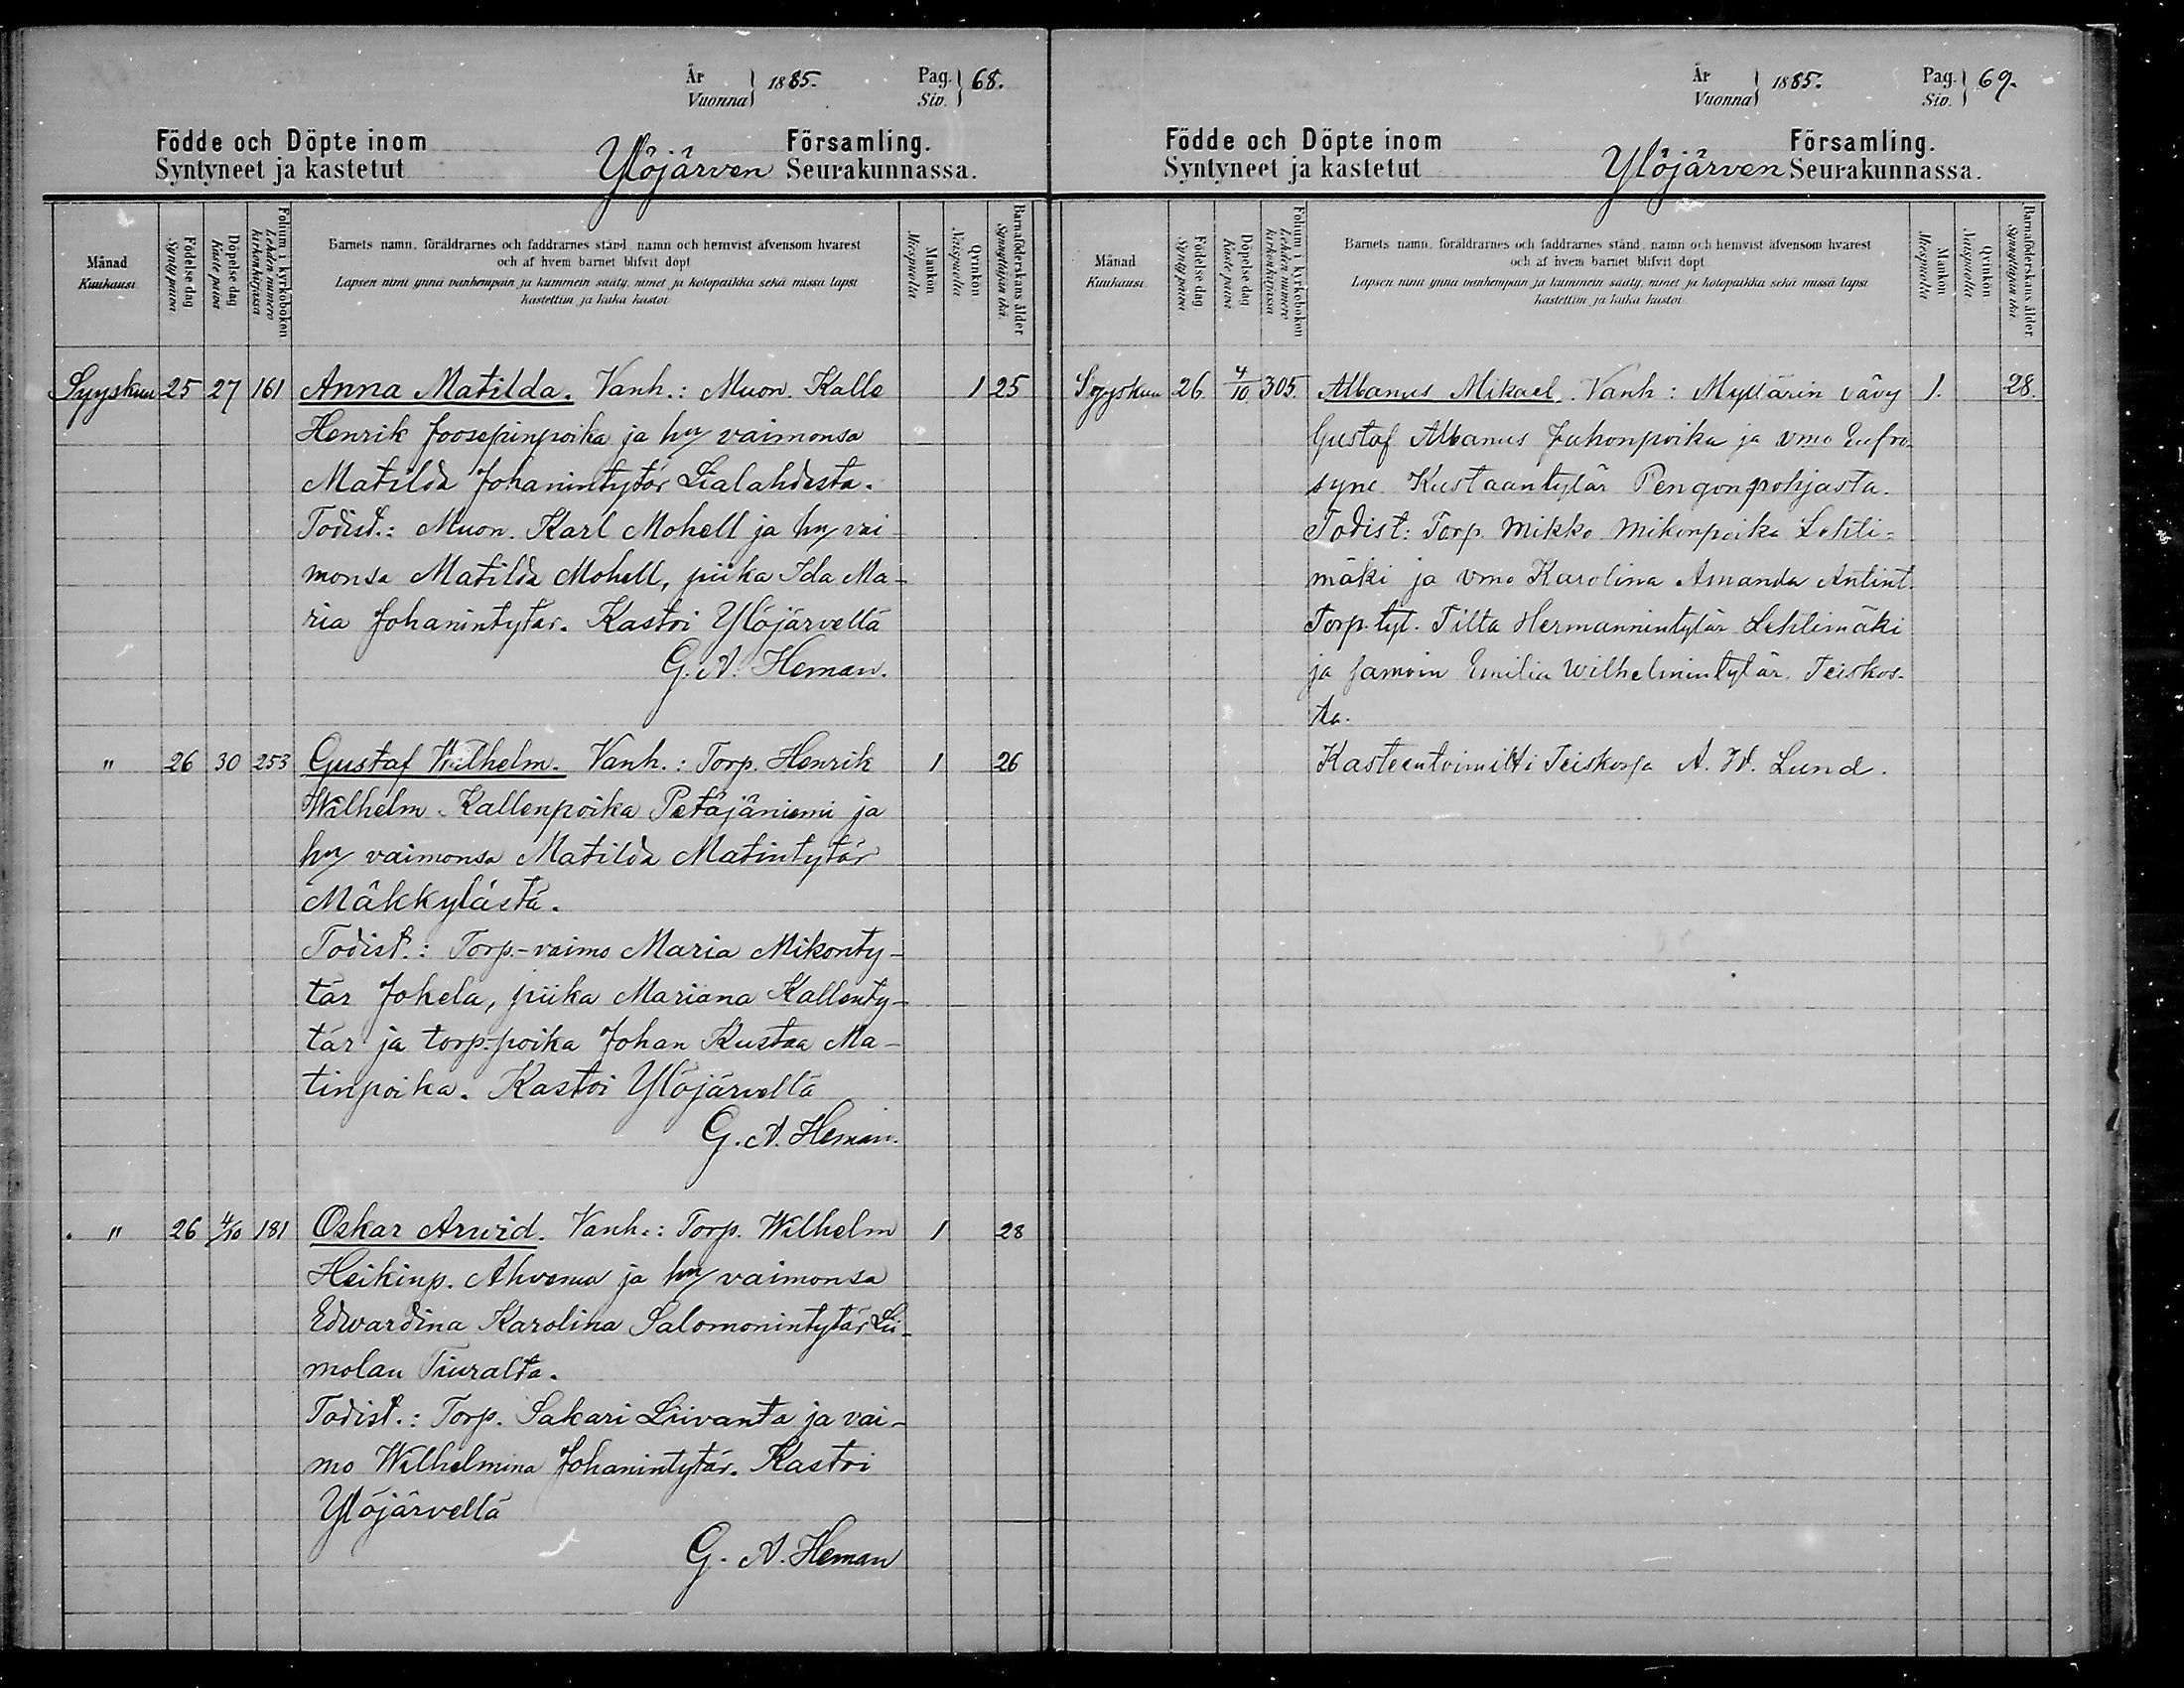 År
Vuonna } 1885. Pag.
Siv. } 68.
Födde och Döpte inom Församling.
Syntyneet ja kastetut Ylöjärven Seurakunnassa.
Månad
Kuukausi
Födelse dag
Synty päivä
Döpelse dag
Kaste päivä
Folium i kyrkoboken
Lehden numero
kirkonkirjassa
Barnets namn, föräldrarnes och faddrarnes stånd, namn och hemvist äfvensom hvarest
och af hvem barnet blifvit döpt
Lapsen nimi ynnä vanhempain ja kummein sääty, nimet ja kotopaikka sekä missä lapsi
kastettiin ja kuka kastoi
Mankön
Miespuolia
Qvinkön
Naispuolia
Barnaföderskans ålder
Synnyttäjän ikä
Syyskuu 25 27 161 Anna Matilda. Vanh.: Muon. Kalle 1 25
Henrik Joosepinpoika ja hn vaimonsa
Matilda Johanintytär Lialahdesta.
Todist.: Muon. Karl Mohell ja hn vai-
monsa Matilda Mohell, piika Ida Ma-
ria Johanintytär. Kastoi Ylöjärvellä
G. A. Heman.
" 26 30 253 Gustaf Wilhelm. Vanh.: Torp. Henrik 1 26
Wilhelm Kallenpoika Petäjäniemi ja
hn vaimonsa Matilda Matintytär
Mäkkylästä.
Todist.: Torp.-vaimo Maria Mikonty-
tär Jokela, piika Mariana Kallenty-
tär ja torp.-poika Johan Kustaa Ma-
tinpoika. Kastoi Ylöjärvellä
G. A. Heman.
" 26 4/10 181 Oskar Arwid. Vanh.: Torp. Wilhelm 1 28
Heikinp. Ahvenus ja hn vaimonsa
Edwardina Karolina Salomonintytär Lii-
molan Tiuralta.
Todist.: Torp. Sakari Liivanta ja vai-
mo Wilhelmina Johanintytär. Kastoi
Ylöjärvellä
G. A. Heman
År
Vuonna } 1885. Pag.
Siv. } 69.
Födde och Döpte inom Församling.
Syntyneet ja kastetut Ylöjärven Seurakunnassa.
Månad
Kuukausi
Födelse dag
Synty päivä
Döpelse dag
Kaste päivä
Folium i kyrkoboken
Lehden numero
kirkonkirjassa
Barnets namn, föräldrarnes och faddrarnes stånd, namn och hemvist äfvensom hvarest
och af hvem barnet blifvit döpt
Lapsen nimi ynnä vanhempain ja kummein sääty, nimet ja kotopaikka sekä missä lapsi
kastettiin ja kuka kastoi
Mankön
Miespuolia
Qvinkön
Naispuolia
Barnaföderskans ålder
Synnyttäjän ikä
Syyskuu 26. 4/10. 305. Albanus Mikael. Vanh: Myllärin vävy 1. 28.
Gustaf Albanus Juhonpoika ja vmo Eufro-
syne Kustaantytär Pengonpohjasta.
Todist: Torp. Mikko Mikonpoika Lehti-
mäki ja vmo Karolina Amanda Antint.
Torp. tyt. Tilta Hermannintytär Lehtimäki
ja samoin Emilia Wilhelmintytär Teiskos-
ta.
Kasteentoimitti Teiskossa A. W. Lund.